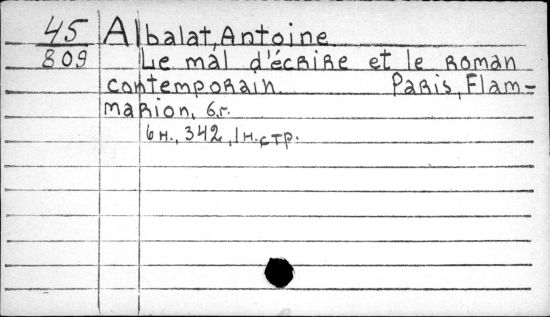 45 Albalat, Antoine.
809 Le mal d'écrire et le roman
contemporain. Paris, Flam-
marion, б.г.
6 н., 342, 1 н. стр.